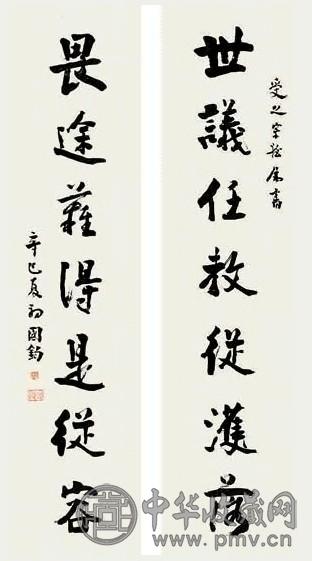 受之宗屬書
世議任教從濩落
畏途難得是從容
辛巳夏初國鈞
中华收藏网
www.pmv.cn